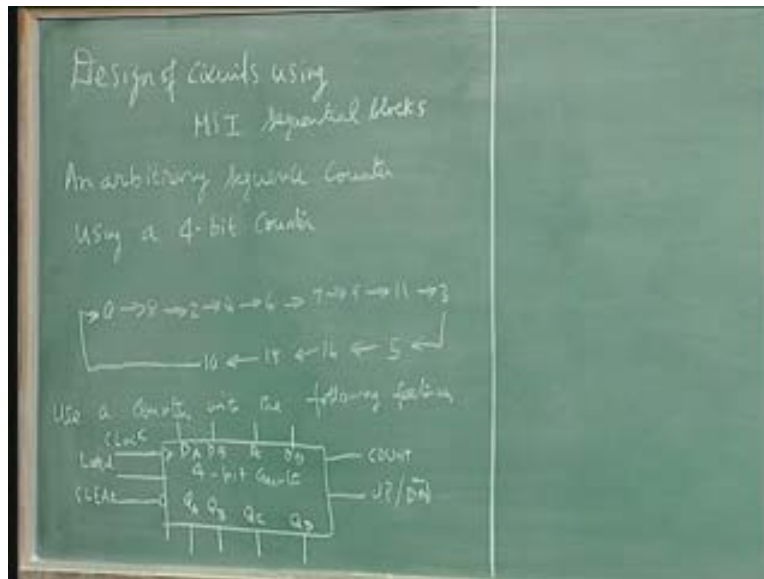 Design of circuits using
MSI sequential blocks
An arbitrary sequence counter
using a 4-bit counter
→ 0 → 8 → 2 → 4 → 6 → 7 → → 11 → 3
10 ← ← 14 ← 5 ←
Use a counter with the following features
CLOCK
LOAD
CLEAR
DA DB DC DD
4-bit Counter
QA QB QC QD
COUNT
UP/DN